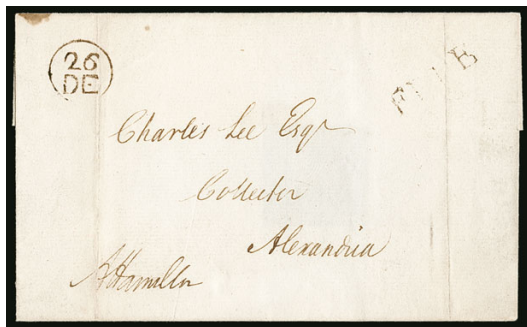 26
DE
FREE
Charles Lee Esqr
Collector
Alexandria
AHamilton